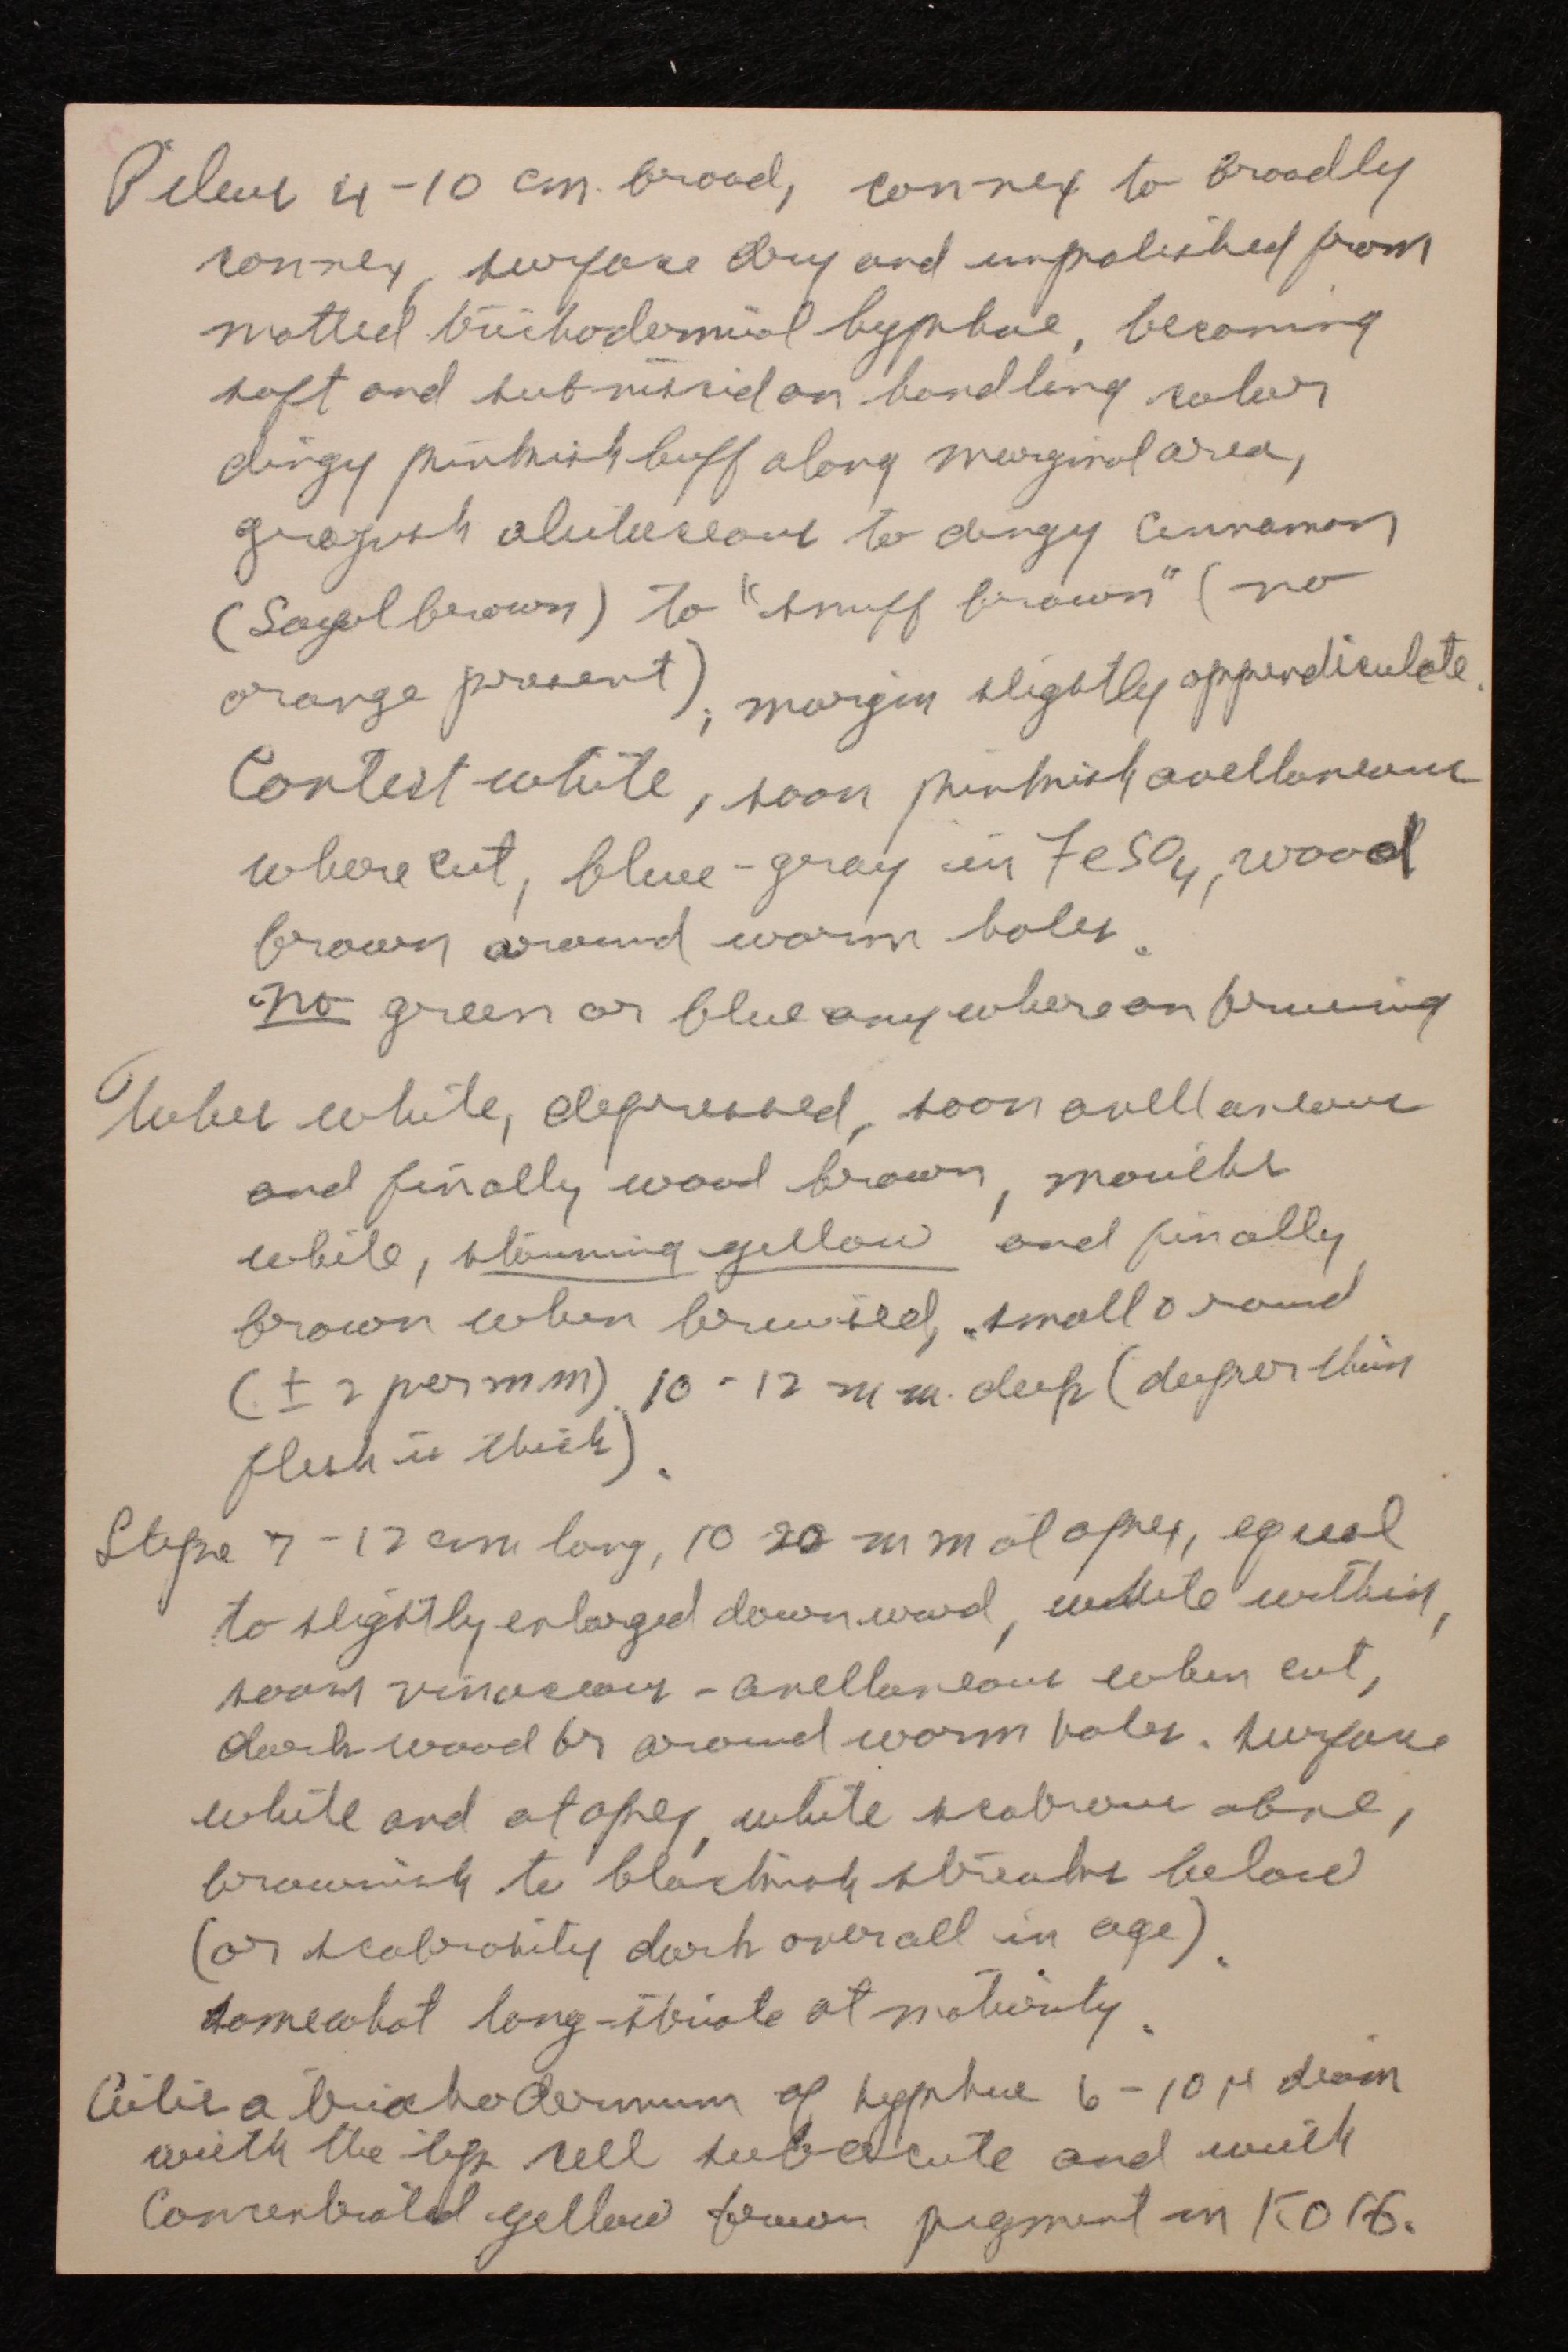 Pileus 4-10 cm. broad, convex to broadly
convex, surface dry and unpolished from
matted trichodermial hyphae, becoming
soft and subviscid on handling color
dingy pinkish buff along marginal area,
grayish alutaceous to dingy cinnamon
(Sayal brown) to "snuff brown" (no
orange present); margin slightly appendiculate.
Context white, soon pinkish avellaneous
where cut, blue-gray in FeSO4, wood
brown around worm holes.
no green or blue anywhere on bruising
Tubes white, depressed, soon avellaneous
and finally wood brown, mouths
white, staining yellow and finally
brown when bruised, small round
(± 2 per mm). 10-12 mm. deep (deeper than
flesh is thick).
Stipe 7-12 cm long, 10 20 mm at apex, equal
to slightly enlarged downward, white within,
soon vinaceous-avellaneous when cut,
dark wood br around worm holes. surface
white and at apex, white scabrous above,
brownish to blackish streaks below
(or scabrosity dark overall in age).
somewhat long-striate at maturity.
Cutis a trichodermum of hyphae 6-10 µ diam
with the tip cell subacute and with
Concentrated yellow brown pigment in KOH.